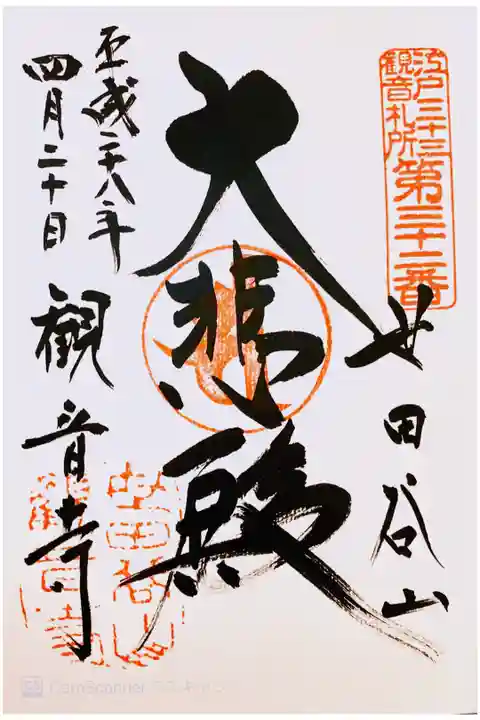 江戸三十三
観音札所
第三十二番
世田谷山
大悲殿
平成二十八年
四月二十日
観音寺
世田谷山
観音寺
CamScanner